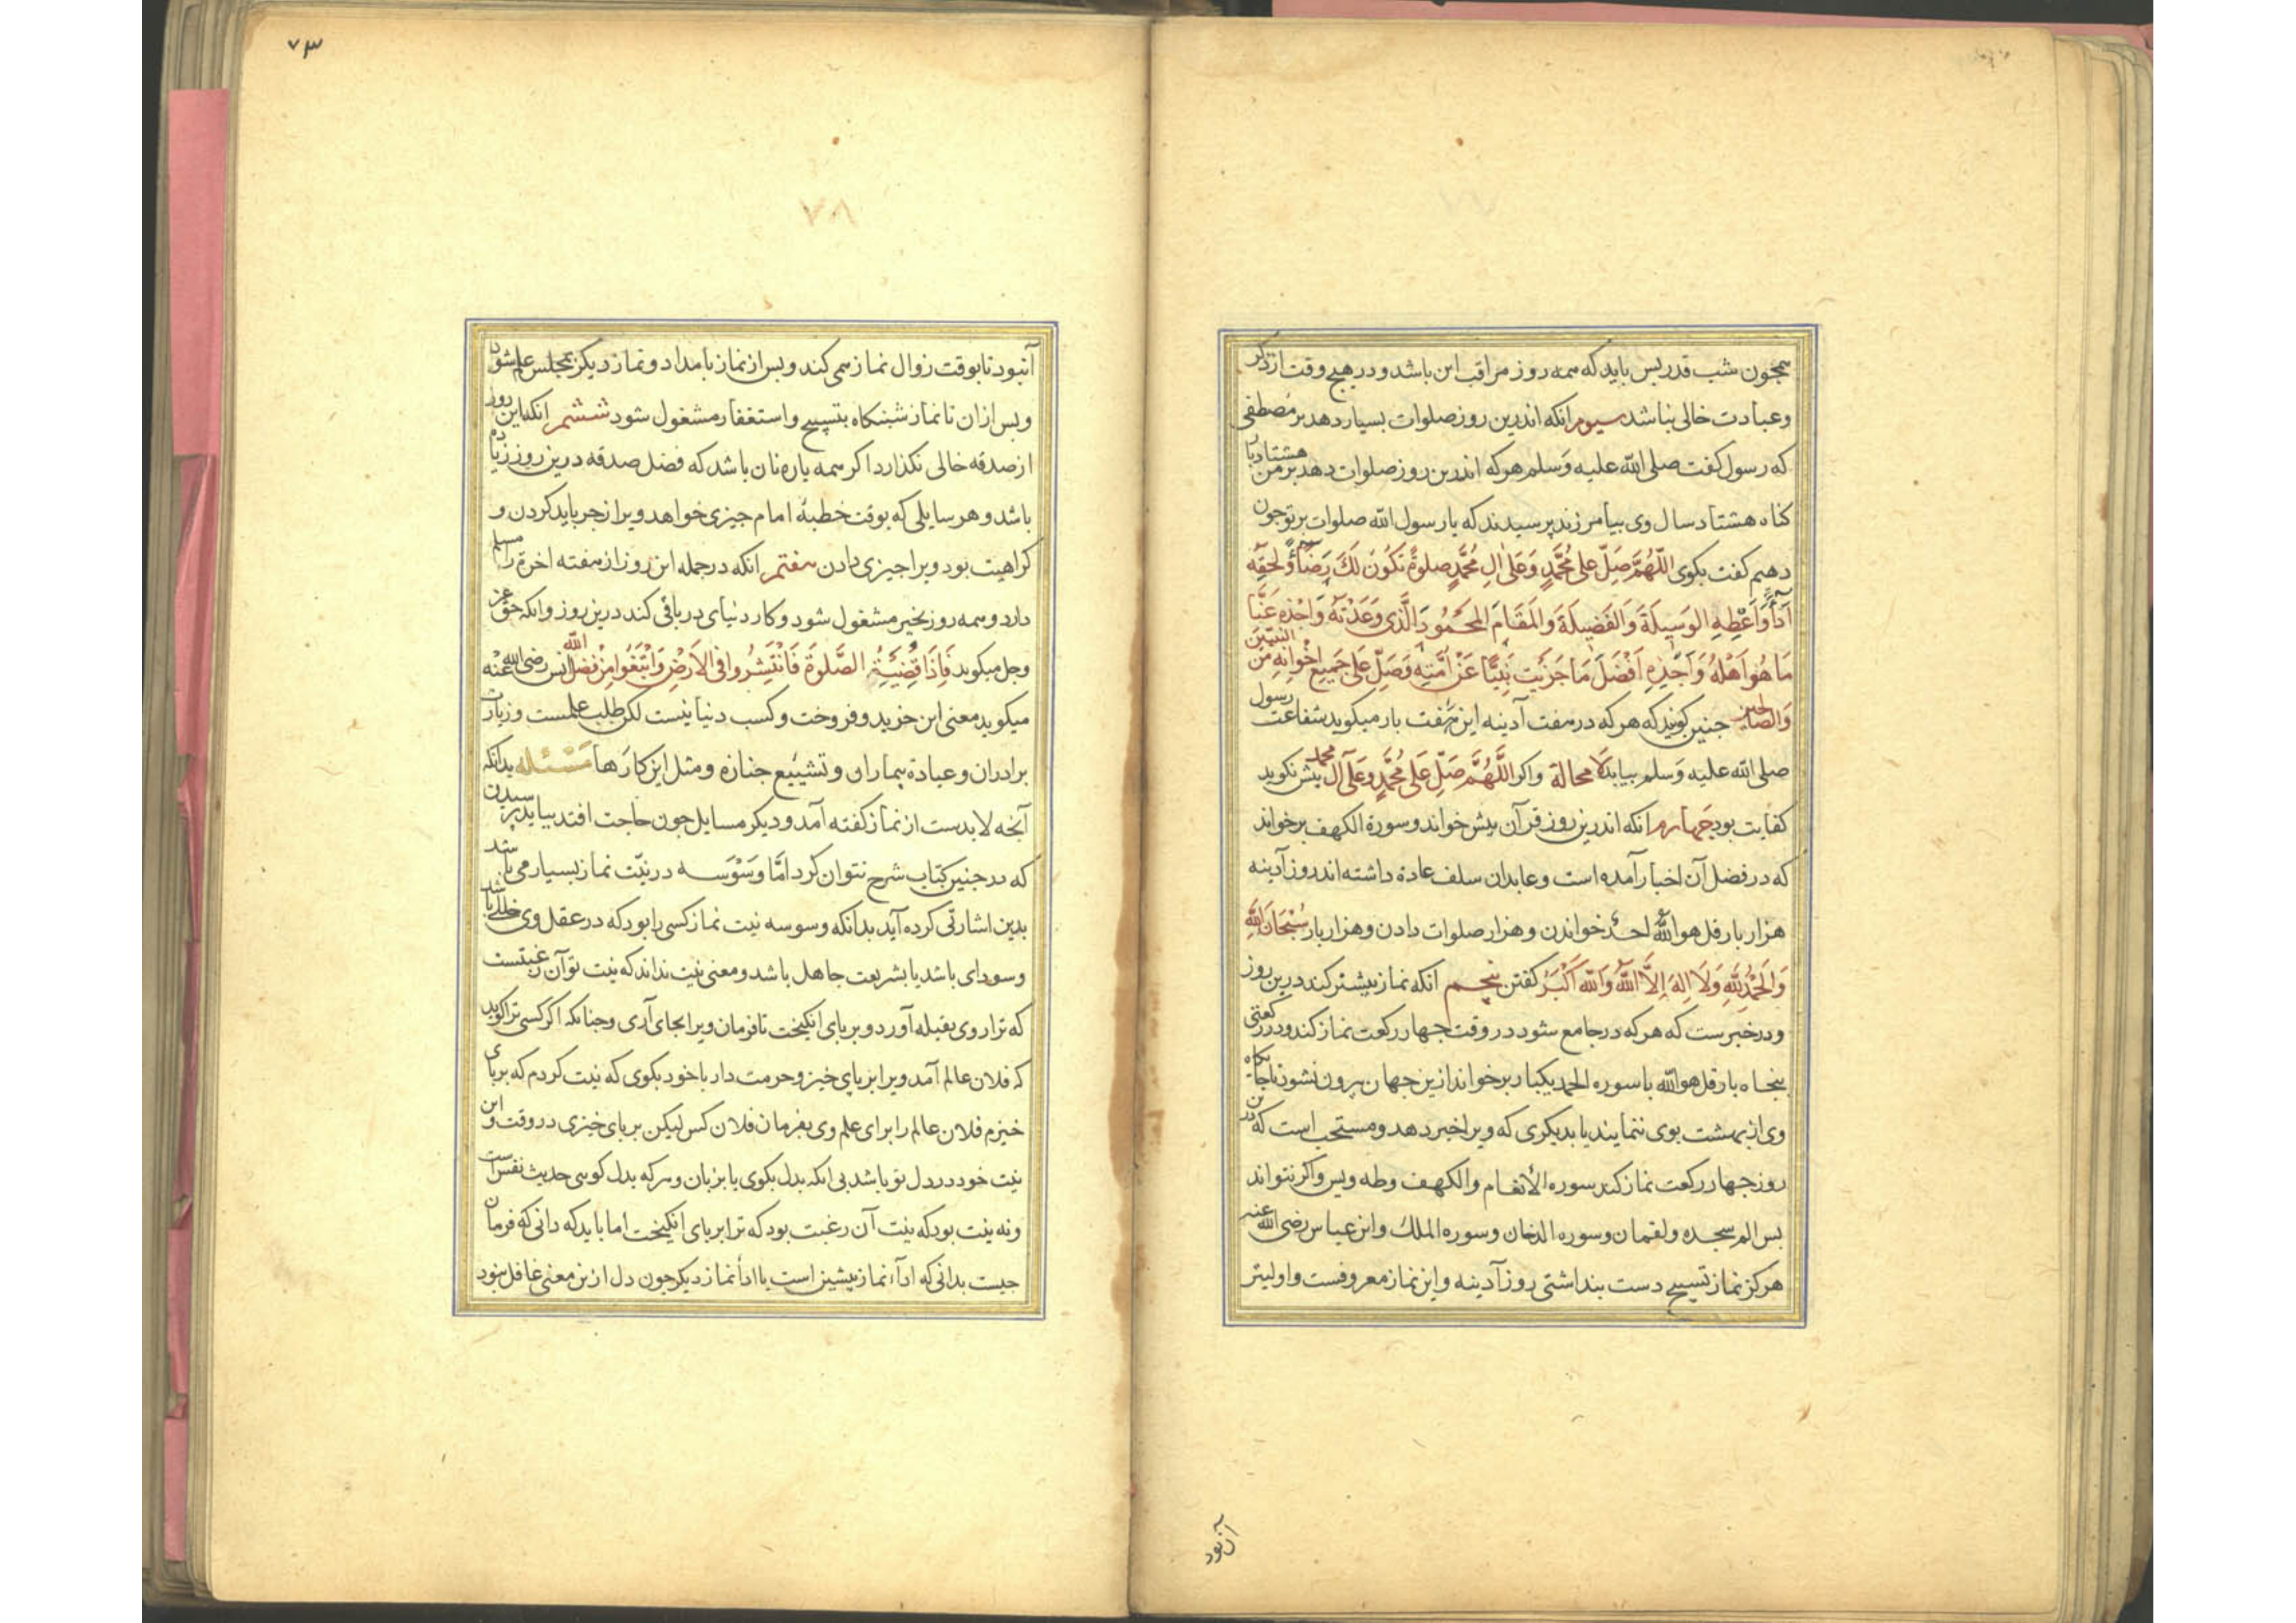 همجون شب قدر بس بايد كه همه روز مراقب اين باشد و در هيج وقت از ذكر
وعبادت خالى نباشد سيوم انكه اندرين روز صلوات بسيار دهد بر مصطفى
كه رسول كفت صلى الله عليه وسلم هر كه اندرين روز صلوات دهد بر من هشتاد بار
كناه هشتاد سال وى بيامرزند پرسيدند كه يا رسول الله صلوات بر تو جون
دهيم كفت بكوى اللّهُمَّ صَلِّ عَلى مُحَمَّدٍ وَعَلى اٰلِ مُحَمَّدٍ صلوةً تَكُونُ لَكَ رِضًا وَلِحَقِّهِ
اَدَاءً وَاَعْطِهِ الوَسِيلَةَ وَالفَضِيلَةَ وَالمَقَامَ المَحْمُودَ الَّذِى وَعَدْتَهُ وَاجْزِهِ عَنَّا
مَا هُوَ اَهْلُهُ وَاَجْزِهِ اَفْضَلَ مَا جَزَيْتَ نَبِيًّا عَنْ اُمَّتِهِ وَصَلِّ عَلى جَمِيعِ اِخْوَانِهِ مِنَ النبيّين
وَالصالحين جنين كويند كه هر كه در هفت آدينه اين هفت بار ميكويد شفاعت رسول
صلى الله عليه وسلم بيابد لا محالة واكر اللَّهُمَّ صَلِّ عَلى مُحَمَّدٍ وعَلى آلِ محمد بيش نكويد
كفايت بود جهارم انكه اندرين روز قرآن بيش خواند وسورة الكهف برخواند
كه در فضل آن اخبار آمده است وعابدان سلف عادة داشته اند روز آدينه
هزار بار قل هو الله احدٌ خواندن وهزار صلوات دادن وهزار بار سُبْحَانَ اللهِ
وَالحَمْدُ لِلّهِ وَلَا اِلهَ اِلَّا اللهُ وَالله اَكْبَرُ كفتن پنجم انكه نماز بيشتر كند درين روز
ودر خبرست كه هر كه در جامع شود در وقت جهار ركعت نماز كند ودر ركعتى
بنجاه بار قل هو الله با سوره الحمد يكبار برخواند ازين جهان بيرون نشود تا جايكاه
وى از بهشت بوى ننمايند يا بديكرى كه ويرا خبر دهد ومستحب است كه درين
روز جهار ركعت نماز كند سوره الأنعام والكهف وطه ويس واكر نتواند
بس الم سجده ولقمان وسوره الدخان وسوره الملك وابن عباس رضى الله عنه
هركز نماز تسبيح دست بنداشتى روز آدينه واين نماز معروفست واوليتر
آن بود
٧٣
٧٨
آنبود تا بوقت زوال نماز همى كند وبس از نماز بامداد ونماز ديكر بمجلس علم شود
وبس ازان تا نماز شبنكاه بتسبيح واستغفار مشغول شود ششم انكه اين روز
از صدقه خالى نكذارد اكر همه باره نان باشد كه فضل صدقه درين روز زياده
باشد وهر سايلى كه بوقت خطبهٔ امام جيزى خواهد ويرا زجر بايد كردن و
كراهيت بود ويرا جيزى دادن هفتم انكه در جمله اين روز از هفته اخرة را مسلم
دارد وهمه روز بخير مشغول شود وكار دنياى در باقى كند درين روز وانكه حق عز
وجل ميكويد فَاِذَا قُضِيَتِ الصَّلوةُ فَانْتَشِرُوا فى الاَرْضِ وَابْتَغُوا مِنْ فضل الله انس رضى الله عنه
ميكويد معنى اين خريد وفروخت وكسب دنيا نيست لكن طلب علمست وزيارت
برادران وعيادة بيماران وتشييع جنازه ومثل اين كارها مَسْئله بدانكه
آنجه لابدست از نماز كفته آمد وديكر مسايل جون حاجت افتد ببايد پرسيدن
كه در جنين كتاب شرح نتوان كرد امَّا وَسْوَسه در نيّت نماز بسيار مى باشد
بدين اشارتى كرده آيد بدانكه وسوسه نيت نماز كسى را بود كه در عقل وى خللى باشد
وسوداى باشد يا بشريعت جاهل باشد ومعنى نيت نداند كه نيت تو آن رغبتست
كه ترا روى بقبله آورد وبر پاى انكيخت تا فرمان ويرا بجاى آرى وجنانكه اكر كسى ترا كويد
كه فلان عالم آمد ويرا بر پاى خيز وحرمت دار با خود بكوى كه نيت كردم كه بر پاى
خيزم فلان عالم را براى علم وى بفرمان فلان كس ليكن بر پاى خيزى در وقت واين
نيت خود در دل تو باشد بى انكه بدل بكوى يا بزبان وهر كه بدل كويى حديث نفس است
ونه نيت بود كه نيت آن رغبت بود كه ترا بر پاى انكيخت اما بايد كه دانى كه فرمان
جيست بدانى كه اداء نماز پيشين است يا اداء نماز ديكر جون دل ازين معنى غافل نبود